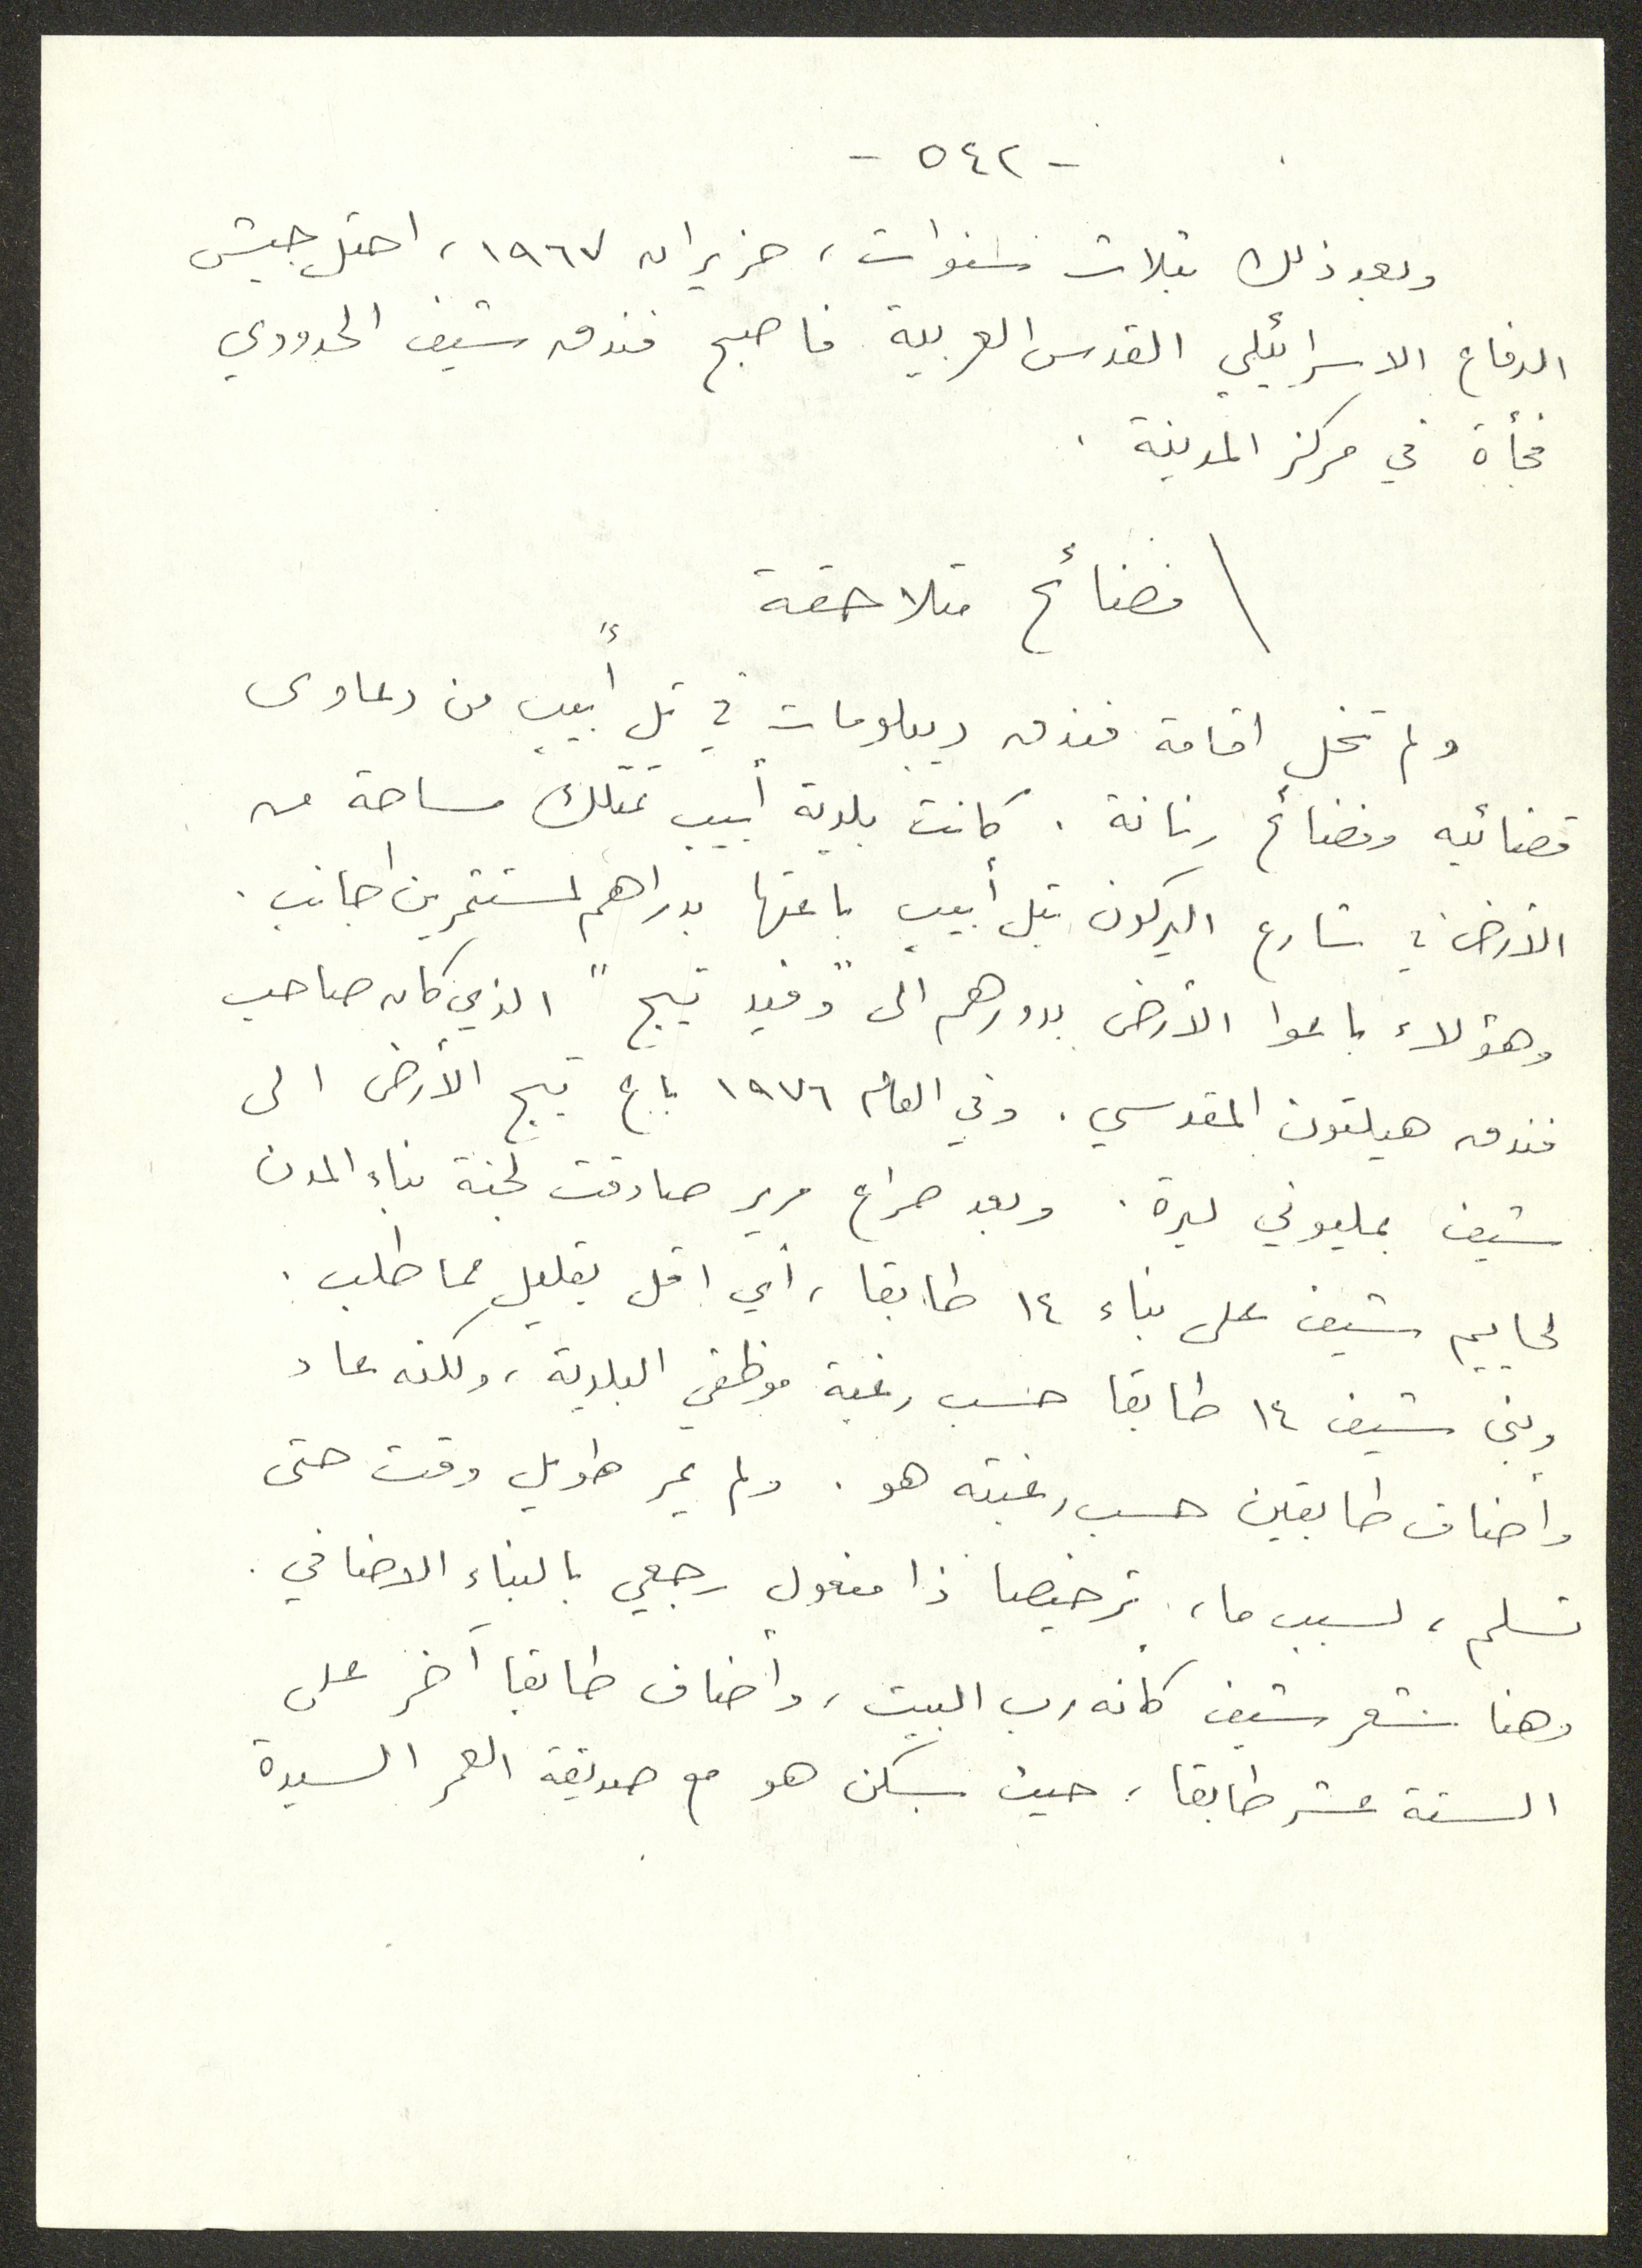 - ٥٤٢ -
وبعد ذلك بثلاث سنوات، حزيران ١٩٦٧، احتل جيش
الدفاع الاسرائيلي القدس العربية فاصبح فندق شيف الحدودي
فجأة في مركز المدينة.
فضائح متلاحقة
ولم تخل اقامة فندق ديبلومات في تل أبيب من دعاوى
قضائيه وفضائح رنانة. كانت بلدية أبيب تمتلك مساحة من
الأرض في شارع اليركون بتل أبيب باعتها بدراهم لمستثمرين اجانب.
وهؤلاء باعوا الأرض بدورهم الى "دفيد تيج" الذي كان صاحب
فندق هيلتون المقدسي. وفي العام ١٩٧٦ باع تيج الأرض الى
شيف بمليوني ليرة. وبعد صراع مرير صادقت لجنة بناء المدن
لحاييم شيف على بناء ١٤ طابقا، أي اقل بقليل مما طلب.
وبنى شيف ١٤ طابقا حسب رغبة موظفي البلدية، ولكنه عاد
وأضاف طابقين حسب رغبته هو. ولم يمر طويل وقت حتى
تسلم، لسبب ما، ترخيصا ذا مفعول رجعي بالبناء الاضافي.
وهنا شعر شيف كأنه رب البيت، وأضاف طابقا آخر على
الستة عشر طابقا، حيث يسكن هو مع صديقة العمر السيدة